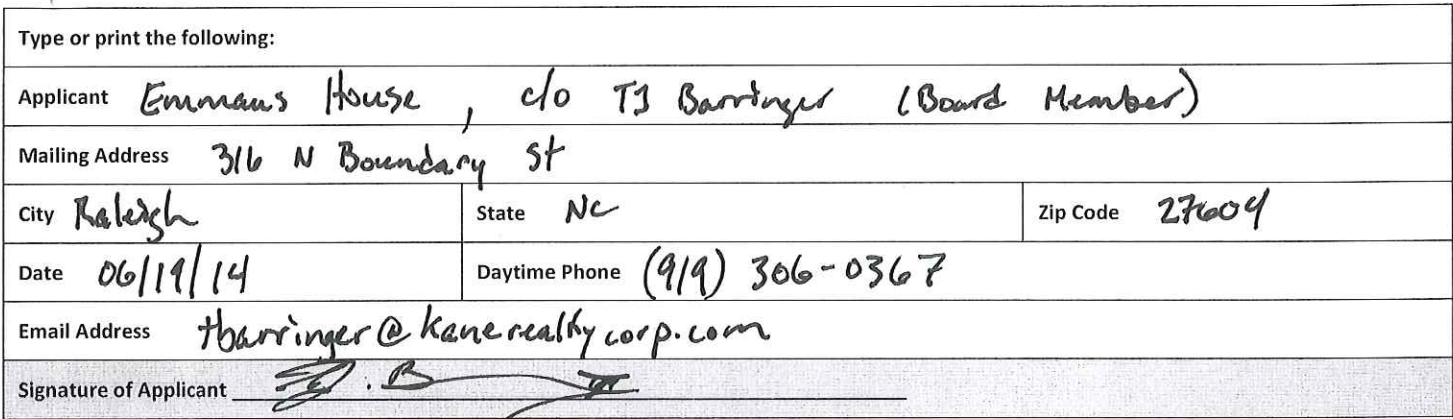 Type or print the following:
Applicant Emmaus House, c/o TJ Barringer (Board Member)
Mailing Address 316 N Boundary St
City Raleigh State NC Zip Code 27604
Date 06/19/14 Daytime Phone (919) 306-0367
Email Address tbarringer@kanerealtycorp.com
Signature of Applicant